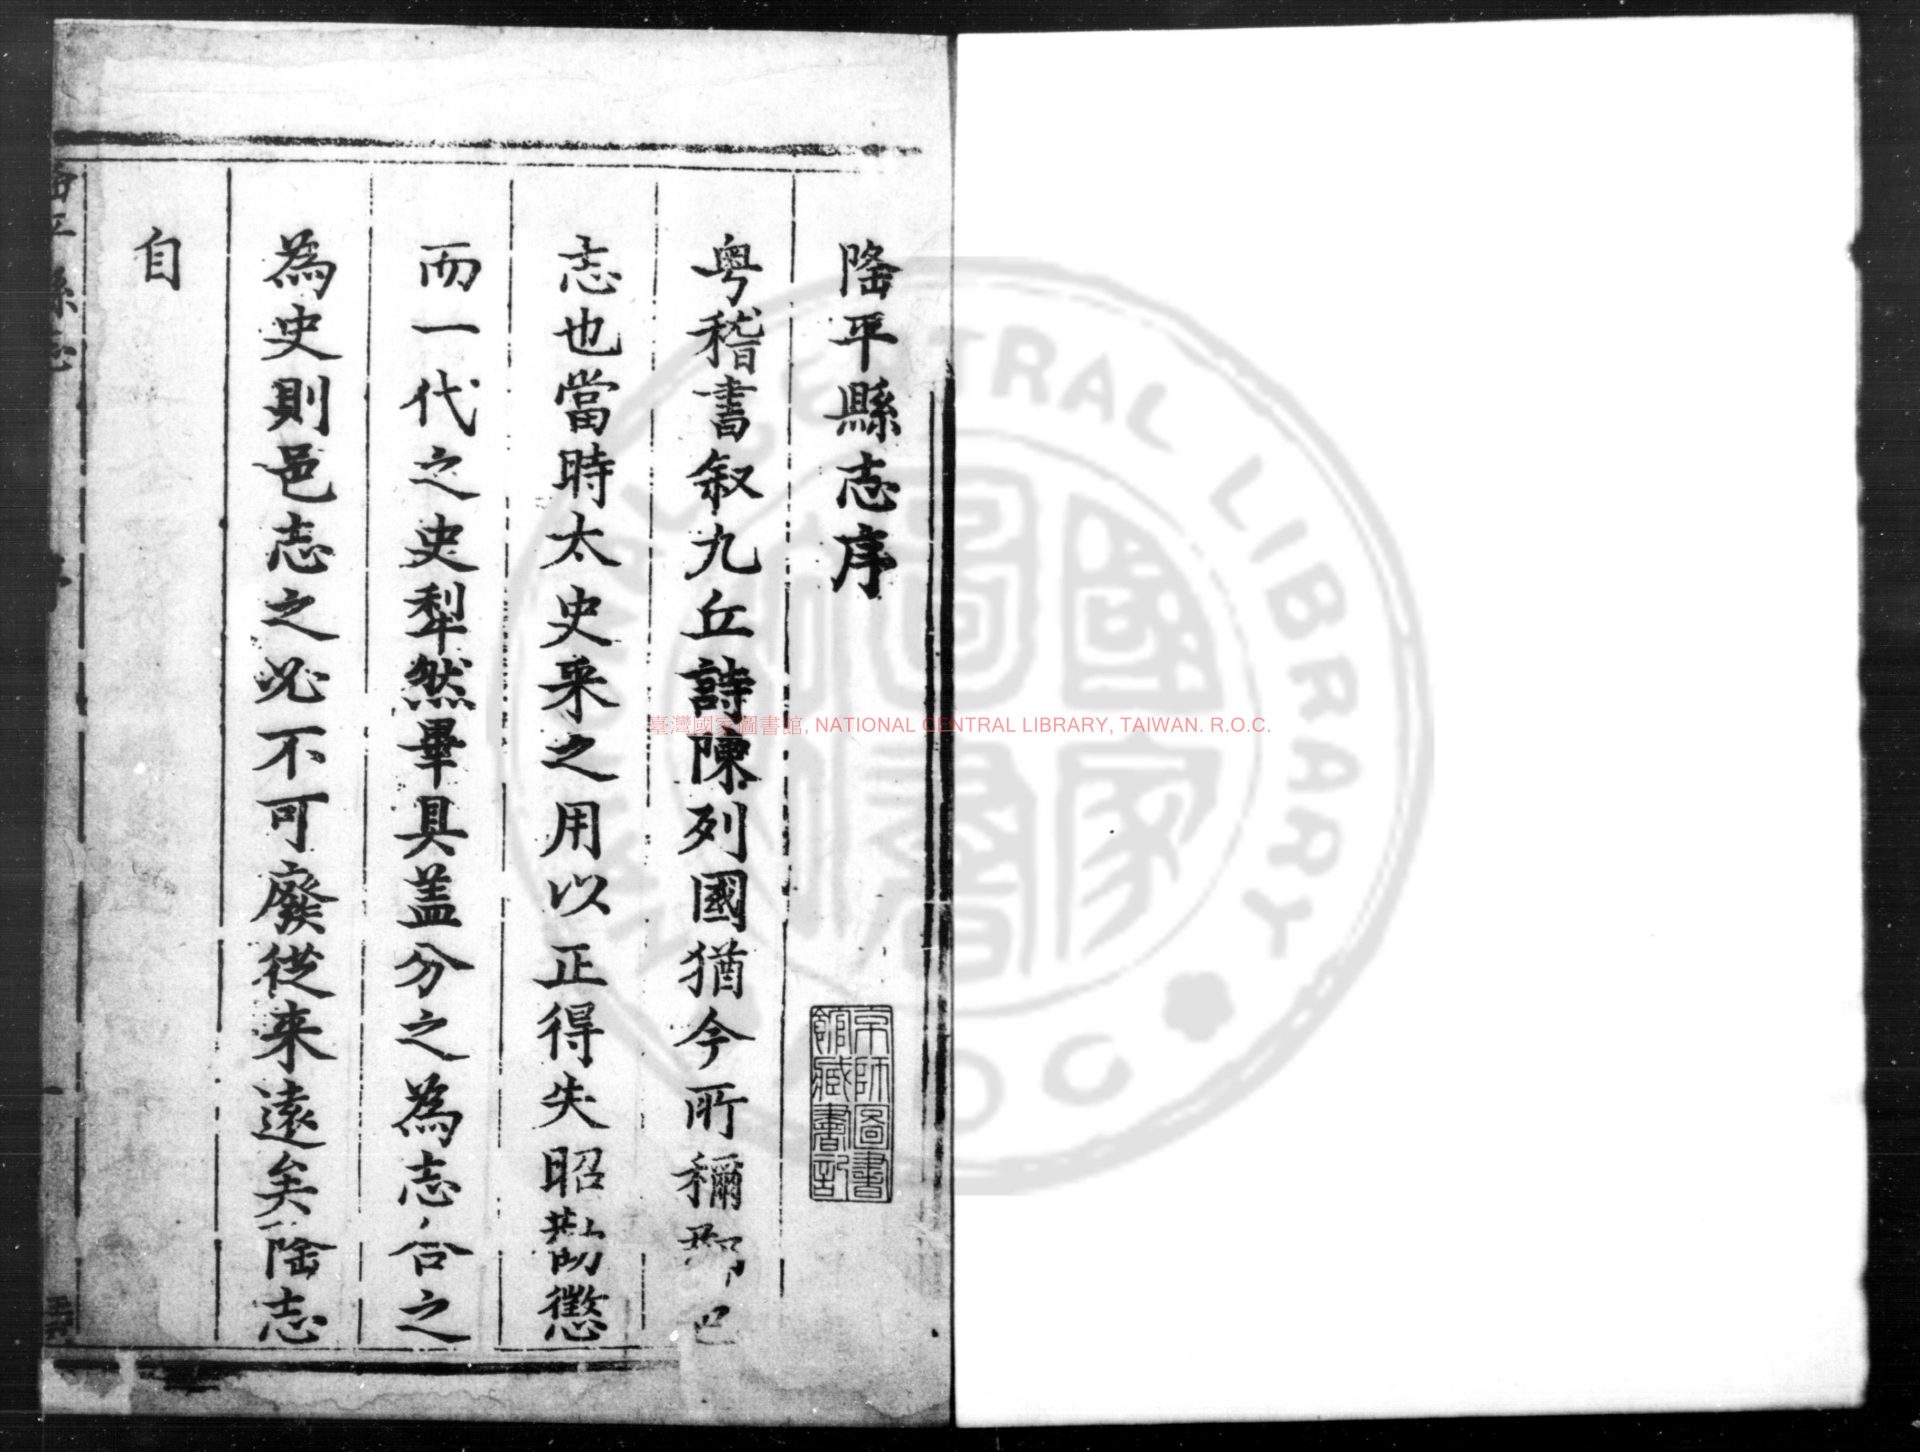 隆平縣志序
粤稽書叙九丘詩陳列國猶今所稱郡邑
志也當時太史采之用以正得失昭勸懲
而一代之史犁然畢具盖分之為志合之
為史則邑志之必不可廢從来遠矣隆志
自
京師圖書
館藏書記
臺灣國家圖書館, NATIONAL CENTRAL LIBRARY, TAIWAN. R.O.C.
NATIONAL CENTRAL LIBRARY
國家圖書